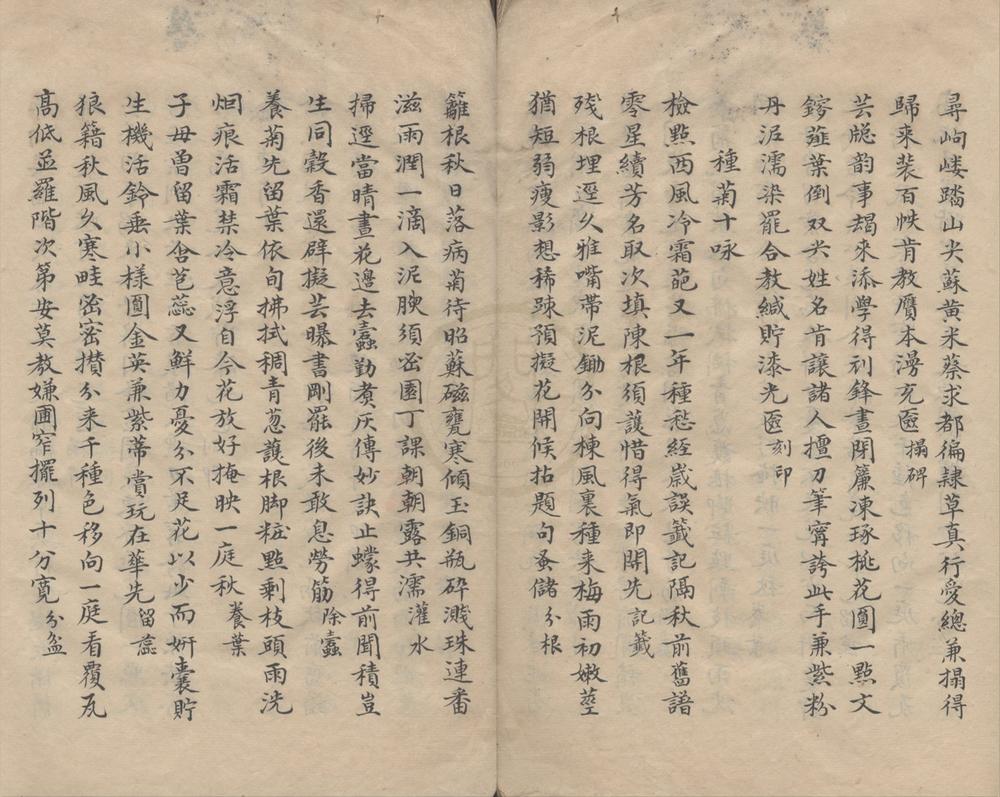 尋岣嶁踏山尖蘇黄米蔡求都徧隷草真行愛總兼搨得
歸来装百帙肯教贋本漫充匳搨碑
芸牕韵事朅来添學得刋鋒晝閉簾凍琢桃花圓一點文
鎊薤葉倒双尖姓名肯讓諸人擅刀筆寕誇此手兼紫粉
丹泥濡染罷合教緘貯漆光匳刻印
種菊十咏
檢點西風冷霜葩又一年種愁經嵗誤籖記隔秋前舊譜
零星續芳名取次填陳根須護惜得氣即開先記籖
殘根埋逕久雅嘴帶泥鋤分向棟風裏種来梅雨初嫩莖
猶短弱瘦影想稀踈預擬花開候拈題句蚤儲分根
籬根秋日落病菊待昭蘇磁甕寒傾玉銅瓶碎濺珠連番
滋雨潤一滴入泥腴須囑園丁課朝朝露共濡灌水
掃逕當晴晝花邊去蠧勤煑灰傳妙訣止蠓得前聞積豈
生同穀香還辟擬芸曝書剛罷後未敢息勞筋除蠧
養菊先留葉依旬拂拭稠青葱護根脚粧點剩枝頭雨洗
烟痕活霜禁冷意浮自今花放好掩映一庭秋養葉
子母曽留葉含苞蕊又鮮力憂分不足花以少而妍囊貯
生機活鈴垂小樣圓金英兼紫蒂賞玩在華先留蕊
狼籍秋風久寒畦密密攅分来千種色移向一庭看覆瓦
髙低並羅階次第安莫教嫌圃窄擺列十分寛分盆